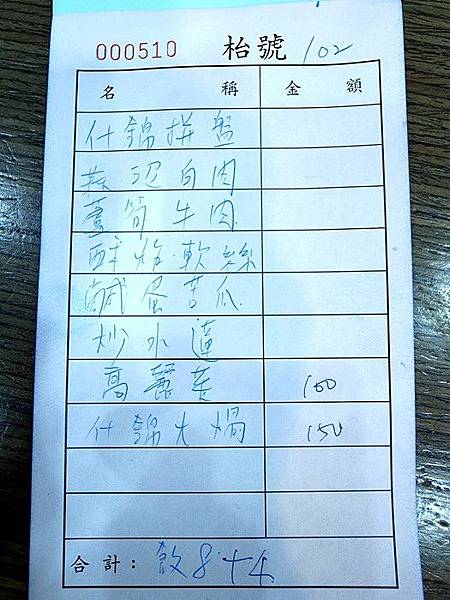 000510 枱號 102
名稱 金額
什錦拼盤
蒜泥白肉
蘆筍牛肉
酥炸軟絲
鹹蛋苦瓜
炒水蓮
高麗菜 100
什錦火鍋 150
合計： 飯8+4